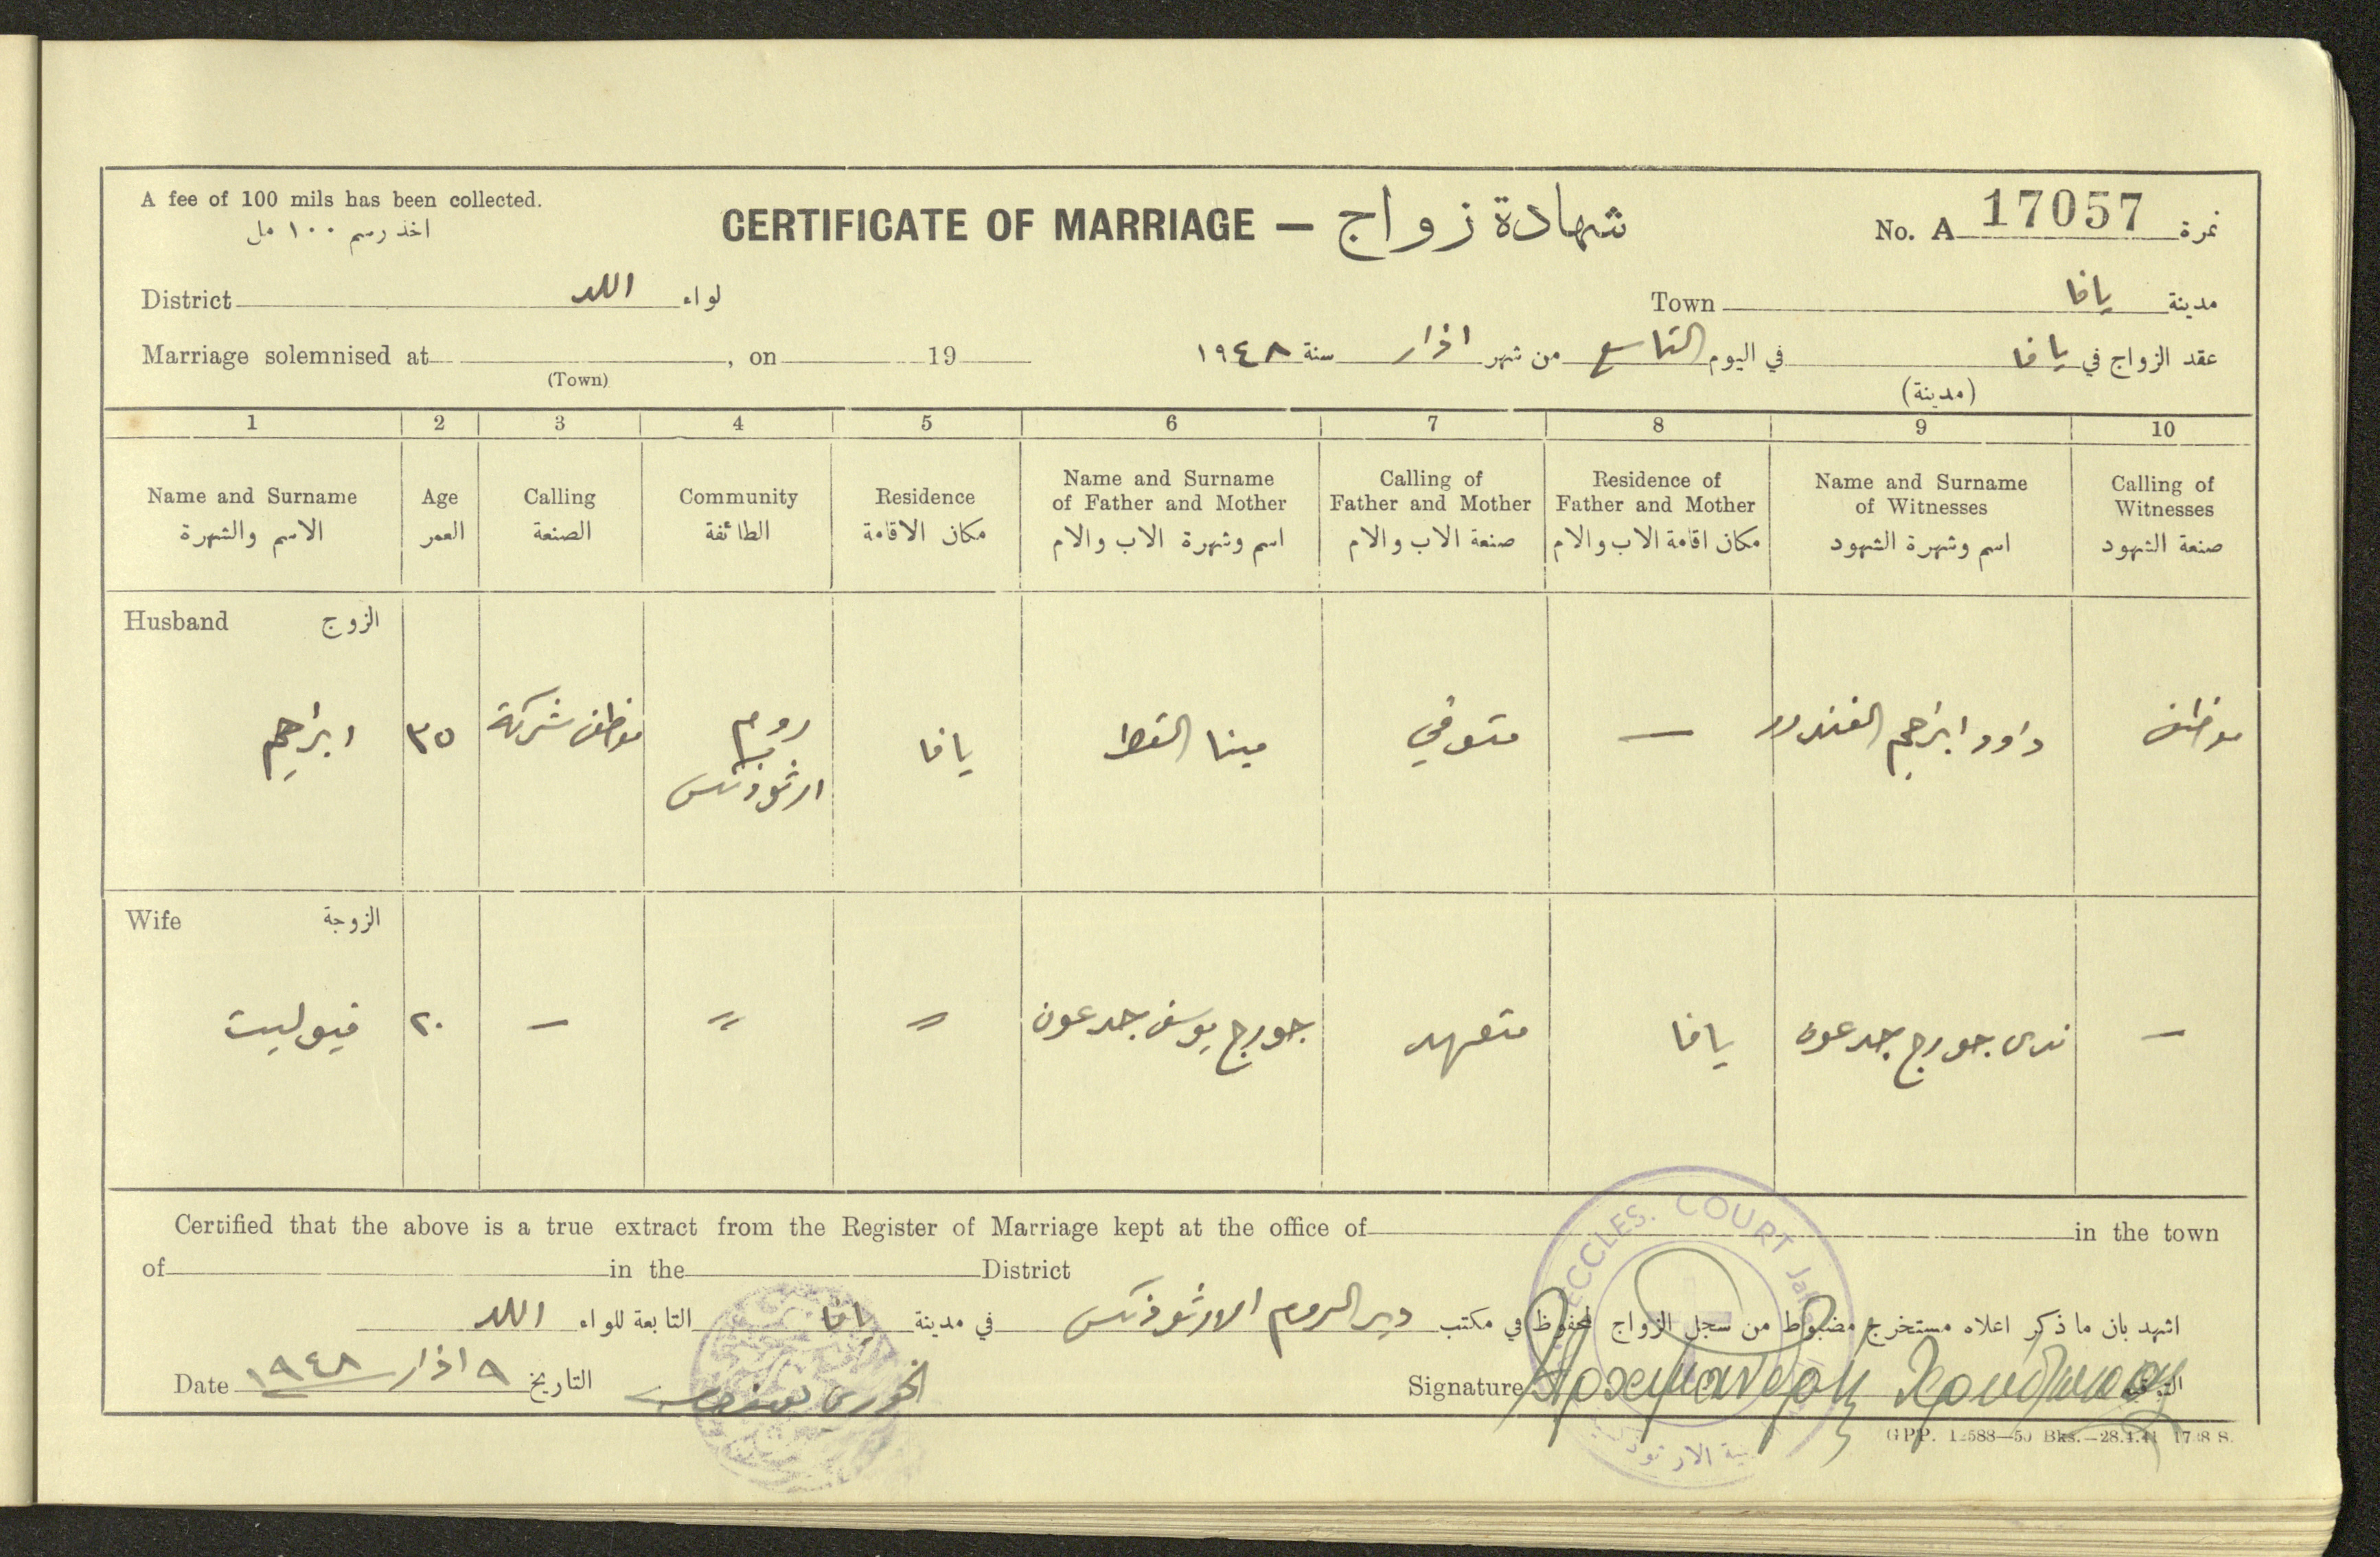 A fee of 100 mils has been collected.
اخذ رسم ١٠٠ مل
CERTIFICATE OF MARRIAGE — شهادة زواج
No. A 17057 نمرة
District اللد لواء
Town يافا مدينة
Marriage solemnised at , on 19
(Town)
عقد الزواج في يافا في اليوم التاسع من شهر اذار سنة ١٩٤٨
(مدينة)
1 2 3 4 5 6 7 8 9 10
Name and Surname
الاسم والشهرة
Age
العمر
Calling
الصنعة
Community
الطائفة
Residence
مكان الاقامة
Name and Surname
of Father and Mother
اسم وشهرة الاب والام
Calling of
Father and Mother
صنعة الاب والام
Residence of
Father and Mother
مكان اقامة الاب والام
Name and Surname
of Witnesses
اسم وشهرة الشهود
Calling of
Witnesses
صنعة الشهود
Husband الزوج
ابراهيم
٣٥
موظف شركة
روم
ارثوذكس
يافا
مينا القط
متوفي
—
داود ابراهيم الغندور
موظف
Wife الزوجة
فيوليت
٢٠
—
〃
〃
جورج يوسف جدعون
متعهد
يافا
ندى جورج جدعون
—
Certified that the above is a true extract from the Register of Marriage kept at the office of in the town
of in the District
اشهد بان ما ذكر اعلاه مستخرج مضبوط من سجل الزواج المحفوظ في مكتب دير الروم الارثوذكس في مدينة يافا التابعة للواء اللد
Date ٩ اذار ١٩٤٨ التاريخ
الخوري
Signature التوقيع
ECCLES. COURT Jaf
G.P.P. 12588—50 Bks.—28.1.4